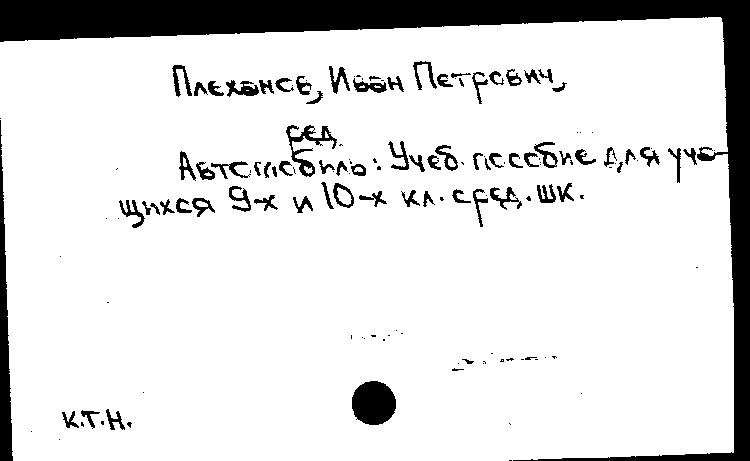 Плеханов, Иван Петрович,
ред.
Автомобиль: Учеб. пособие для уча-
щихся 9-х и 10-х кл. сред. шк.
к.т.н.